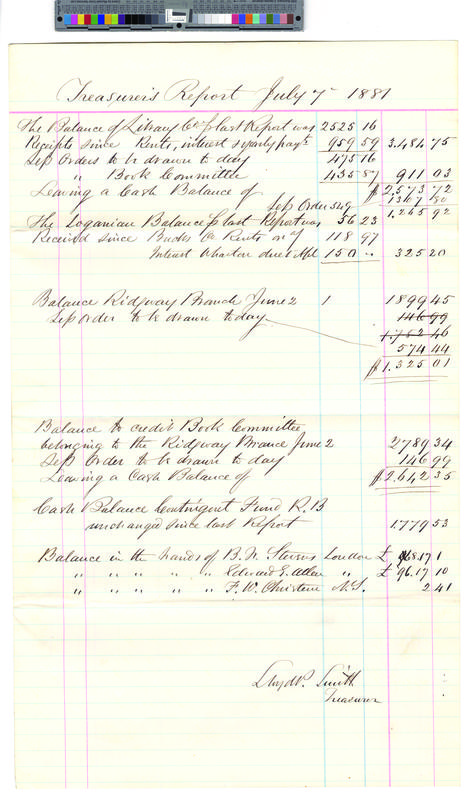 Treasurer's Report July 7 1881
The Balance of Library Co p last Report was 2525 16
Receipts since Rents, interest & yearly paymts 959 59 3.484 75
Less Orders to be drawn to day 475 16
" Book Committee 435 87 911 03
Leaving a Cash Balance of $2,573 72
Less Order 549 1307 80
The Loganian Balance p last Report was 56 23 1,265 92
Received since Bucks Co Rents
118 97
Interest Wharton due 1 Apl 150 " 325 20
Balance Ridgway Branch June 2 1 1899 45
Less order to be drawn to day 146 99
1.752 46
574 44
$1.325 01
Balance to credit Book Committee
belonging to the Ridgway Brance June 2 2789 34
Less Order to be drawn to day 146 99
Leaving a Cash Balance of $2.642 35
Cash Balance Contingent Fund R.B
unchanged since last Report 1.779 53
Balance in the hands of B. F. Stevens London £ 168.17 1
" " " " " Edward G. Allen " £ 96.17 10
" " " " " F. W. Christern N.Y. 2 41
Lloyd P. Smith
Treasurer